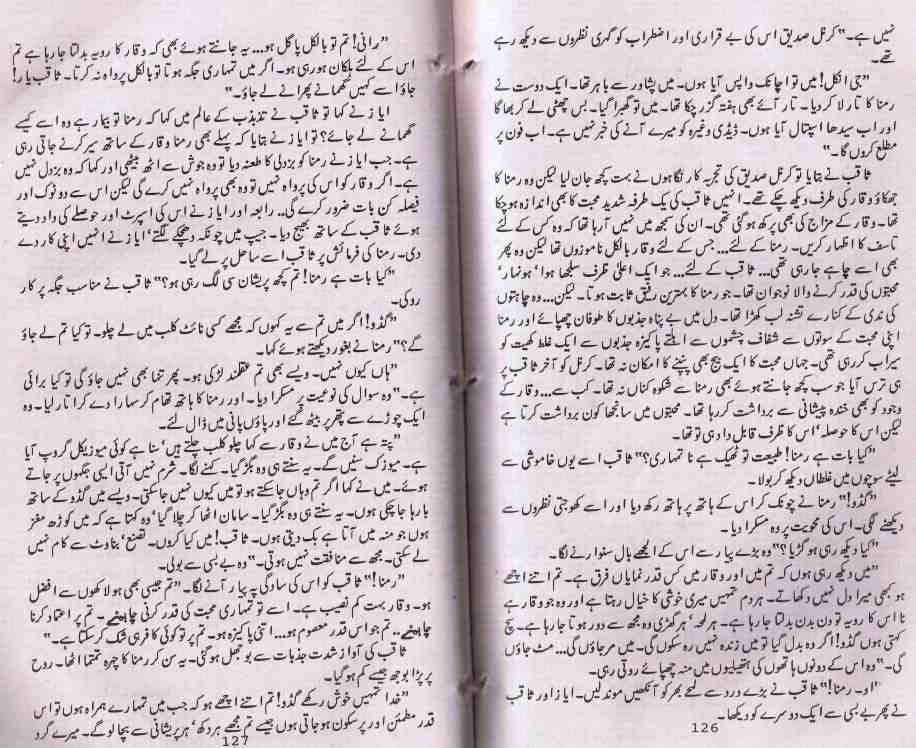 نہیں ہے۔" کرنل صدیق اس کی بے قراری اور اضطراب کو گہری نظروں سے دیکھ رہے
تھے۔
"جی انکل! میں تو اچانک واپس آیا ہوں۔ میں پشاور سے باہر تھا۔ ایک دوست نے
رمنا کا تار لا کر دیا۔ تار آئے بھی ہفتہ گزر چکا تھا۔ میں تو گھبرا گیا۔ بس چھٹی لے کر بھاگا
اور اب سیدھا اسپتال آیا ہوں۔ ڈیڈی وغیرہ کو میرے آنے کی خبر نہیں ہے۔ اب فون پر
مطلع کروں گا۔"
ثاقب نے بتایا تو کرنل صدیق کی تجربہ کار نگاہوں نے بہت کچھ جان لیا لیکن وہ رمنا کا
جھکاؤ وقار کی طرف دیکھ چکے تھے۔ انہیں ثاقب کی یک طرفہ شدید محبت کا بھی اندازہ ہو چکا
تھا۔ وقار کے مزاج کی بھی پرکھ ہو گئی تھی۔ ان کی سمجھ میں نہیں آ رہا تھا کہ وہ کس کے لئے
تاسف کا اظہار کریں۔ رمنا کے لئے... جس کے لئے وقار بالکل ناموزوں تھا لیکن وہ پھر
بھی اسے چاہے جا رہی تھی... ثاقب کے لئے... جو ایک اعلیٰ ظرف سلجھا ہوا' ہونہار'
محبتوں کی قدر کرنے والا نوجوان تھا۔ جو رمنا کا بہترین رفیق ثابت ہوتا۔ لیکن... وہ چاہتوں
کی ندی کے کنارے تشنہ لب کھڑا تھا۔ دل میں بے پناہ جذبوں کا طوفان چھپائے اور رمنا
اپنی محبت کے سوتوں سے شفاف چشموں سے ابلتے پاکیزہ جذبوں سے ایک غلط کھیت کو
سیراب کر رہی تھی۔ جہاں محبت کا ایک بیج بھی پنپنے کا امکان نہ تھا۔ کرنل کو آخر ثاقب پر
ہی ترس آیا جو سب کچھ جانتے ہوئے بھی رمنا سے شکوہ کناں نہ تھا۔ کب سے... وقار کے
وجود کو بھی خندہ پیشانی سے برداشت کر رہا تھا۔ محبتوں میں سانجھا کون برداشت کرتا ہے
لیکن اس کا حوصلہ' اس کا ظرف قابل داد ہی تو تھا۔
"کیا بات ہے رمنا! طبیعت تو ٹھیک ہے نا تمہاری؟" ثاقب اسے یوں خاموشی سے
لیٹے سوچوں میں غلطاں دیکھ کر بولا۔
"گڈو!" رمنا نے چونک کر اس کے ہاتھ پر ہاتھ رکھ دیا اور اسے کھوجتی نظروں سے
دیکھنے لگی۔ اس کی محویت پر وہ مسکرا دیا۔
"کیا دیکھ رہی ہو گڑیا؟" وہ بڑے پیار سے اس کے الجھے بال سنوارنے لگا۔
"میں دیکھ رہی ہوں کہ تم میں اور وقار میں کس قدر نمایاں فرق ہے۔ تم اتنے اچھے
ہو کبھی میرا دل نہیں دکھاتے۔ ہر دم تمہیں میری خوشی کا خیال رہتا ہے اور وہ جو وقار ہے
نا اس کا رویہ تو دن بدن بدلتا جا رہا ہے۔ ہر لمحہ' ہر گھڑی وہ مجھ سے دور ہوتا جا رہا ہے۔ سچ
کہتی ہوں گڈو! اگر وہ بدل گیا تو میں زندہ نہیں رہ سکوں گی۔ میں مر جاؤں گی... مٹ جاؤں
گی۔" وہ اس کے دونوں ہاتھوں کی ہتھیلیوں میں منہ چھپائے روتی رہی۔
"او۔ رمنا!" ثاقب نے بڑے درد سے لمحے بھر کو آنکھیں موند لیں۔ ایاز اور ثاقب
نے پھر بے بسی سے ایک دوسرے کو دیکھا۔
126
"رانی! تم تو بالکل پاگل ہو... یہ جانتے ہوئے بھی کہ وقار کا رویہ بدلتا جا رہا ہے تم
اس کے لئے ہلکان ہو رہی ہو۔ اگر میں تمہاری جگہ ہوتا تو بالکل پرواہ نہ کرتا۔ ثاقب یار!
جاؤ اسے کہیں گھمانے پھرانے لے جاؤ۔"
ایاز نے کہا تو ثاقب نے تذبذب کے عالم میں کہا کہ رمنا تو بیمار ہے وہ اسے کیسے
گھمانے لے جائے؟ تو ایاز نے بتایا کہ پہلے بھی رمنا وقار کے ساتھ سیر کرنے جاتی رہی
ہے۔ جب ایاز نے رمنا کو بزدلی کا طعنہ دیا تو وہ جوش سے اٹھ بیٹھی اور کہا کہ وہ بزدل نہیں
ہے۔ اگر وقار کو اس کی پرواہ نہیں تو وہ بھی پرواہ نہیں کرے گی لیکن اس سے دو ٹوک اور
فیصلہ کن بات ضرور کرے گی.. رابعہ اور ایاز نے اس کی اسپرٹ اور حوصلے کی داد دیتے
ہوئے ثاقب کے ساتھ بھیج دیا۔ جیپ میں چونکہ دھچکے لگتے' ایاز نے انہیں اپنی کار دے
دی۔ رمنا کی فرمائش پر ثاقب اسے ساحل پر لے گیا۔
"کیا بات ہے رمنا! تم کچھ پریشان سی لگ رہی ہو؟" ثاقب نے مناسب جگہ پر کار
روکی۔
"گڈو! اگر میں تم سے یہ کہوں کہ مجھے کسی نائٹ کلب میں لے چلو۔ تو کیا تم لے جاؤ
گے؟" رمنا نے بغور دیکھتے ہوئے کہا۔
"ہاں کیوں نہیں۔ ویسے بھی تم عقلمند لڑکی ہو۔ پھر تنہا بھی نہیں جاؤ گی تو کیا برائی
ہے۔" وہ سوال کی نوعیت پر مسکرا دیا۔ اور رمنا کا ہاتھ تھام کر سہارا دے کر اتار لیا۔ وہ
ایک چوڑے سے پتھر پر بیٹھ گئے اور پاؤں پانی میں ڈال لئے۔
"پتہ ہے آج میں نے وقار سے کہا چلو کلب چلتے ہیں' سنا ہے کوئی میوزیکل گروپ آیا
ہے۔ میوزک سنیں گے۔ یہ سنتے ہی وہ بگڑ گیا۔ کہنے لگا۔ شرم نہیں آتی ایسی جگہوں پر جاتے
ہوئے۔ میں نے کہا اگر تم وہاں جا سکتے ہو تو میں کیوں نہیں جا سکتی۔ ویسے میں گڈو کے ساتھ
بارہا جا چکی ہوں۔ یہ سنتے ہی وہ بگڑ گیا۔ سامان اٹھا کر چلا گیا' وہ کہتا ہے کہ میں کوڑھ مغز
ہوں جو منہ میں آتا ہے بک دیتی ہوں۔ ثاقب! میں کیا کروں۔ تصنع' بناوٹ سے کام نہیں
لے سکتی۔ مجھ سے منافقت نہیں ہوتی۔" وہ بے بسی سے بولی۔
"رمنا!" ثاقب کو اس کی سادگی پہ پیار آنے لگا۔ "تم جیسی بھی ہو لاکھوں سے افضل
ہو۔ وقار بہت کم نصیب ہے۔ اسے تو تمہاری محبت کی قدر کرنی چاہیئے۔ تم پر اعتماد کرنا
چاہیئے.. تم جو اس قدر معصوم ہو... اتنی پاکیزہ ہو۔ تم پر تو کوئی کافر ہی شک کر سکتا ہے۔"
ثاقب کی آواز شدت جذبات سے بوجھل ہو گئی۔ یہ سن کر رمنا کا چہرہ تمتما اٹھا۔ روح
پر پڑا بوجھ جیسے کم ہو گیا۔
"خدا تمہیں خوش رکھے گڈو! تم اتنے اچھے ہو کہ جب میں تمہارے ہمراہ ہوں تو اس
قدر مطمئن اور پرسکون ہو جاتی ہوں جیسے تم مجھے ہر دکھ' ہر پریشانی سے بچا لو گے۔ میرے گرد
127